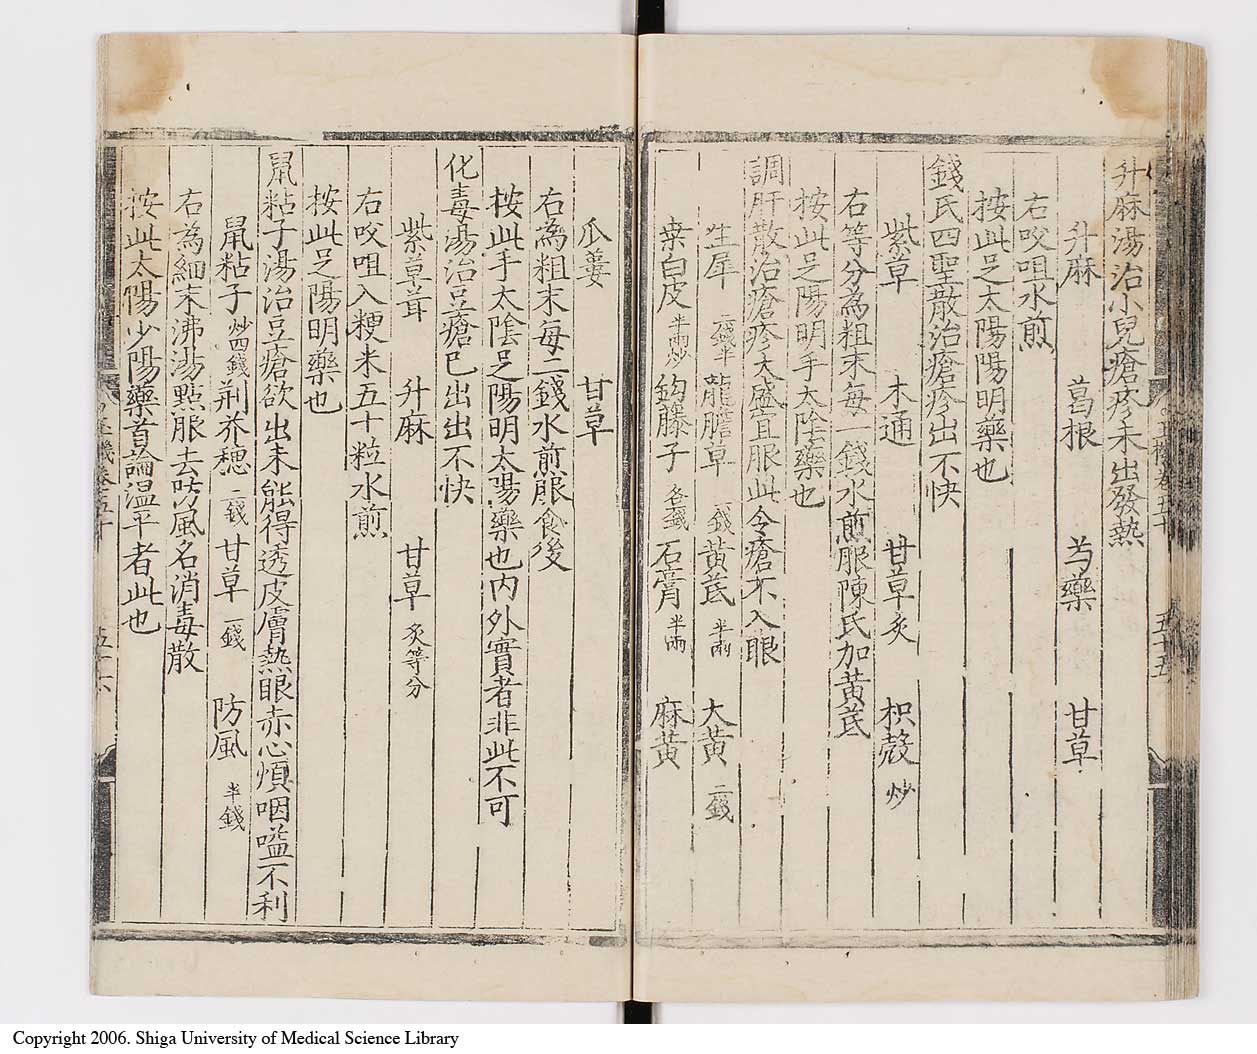 升麻湯治小兒瘡疹未出發熱
升麻 葛根 芍藥 甘草
右㕮咀水煎
按此足太陽陽明藥也
錢氏四聖散治瘡疹出不快
紫草 木通 甘草炙 枳殼炒
右等分為粗末每一錢水煎服陳氏加黃芪
按此足陽明手太陰藥也
調肝散治瘡疹太盛宜服此令瘡不入眼
生犀二錢半 龍膽草一錢 黃芪半兩 大黃二錢
桒白皮半兩炒 鈎藤子各錢 石膏半兩 麻黃
瓜蔞 甘草
右為粗末每二錢水煎服食後
按此手太陰足陽明太陽藥也內外實者非此不可
化毒湯治豆瘡已出出不快
紫草茸 升麻 甘草炙等分
右㕮咀入粳米五十粒水煎
按此足陽明藥也
鼠粘子湯治豆瘡欲出未能得透皮膚熱眼赤心煩咽嗌不利
鼠粘子炒四錢 荊芥穗二錢 甘草一錢 防風半錢
右為細末沸湯點服去防風名消毒散
按此太陽少陽藥首論溫平者此也
五十五
Copyright 2006. Shiga University of Medical Science Library